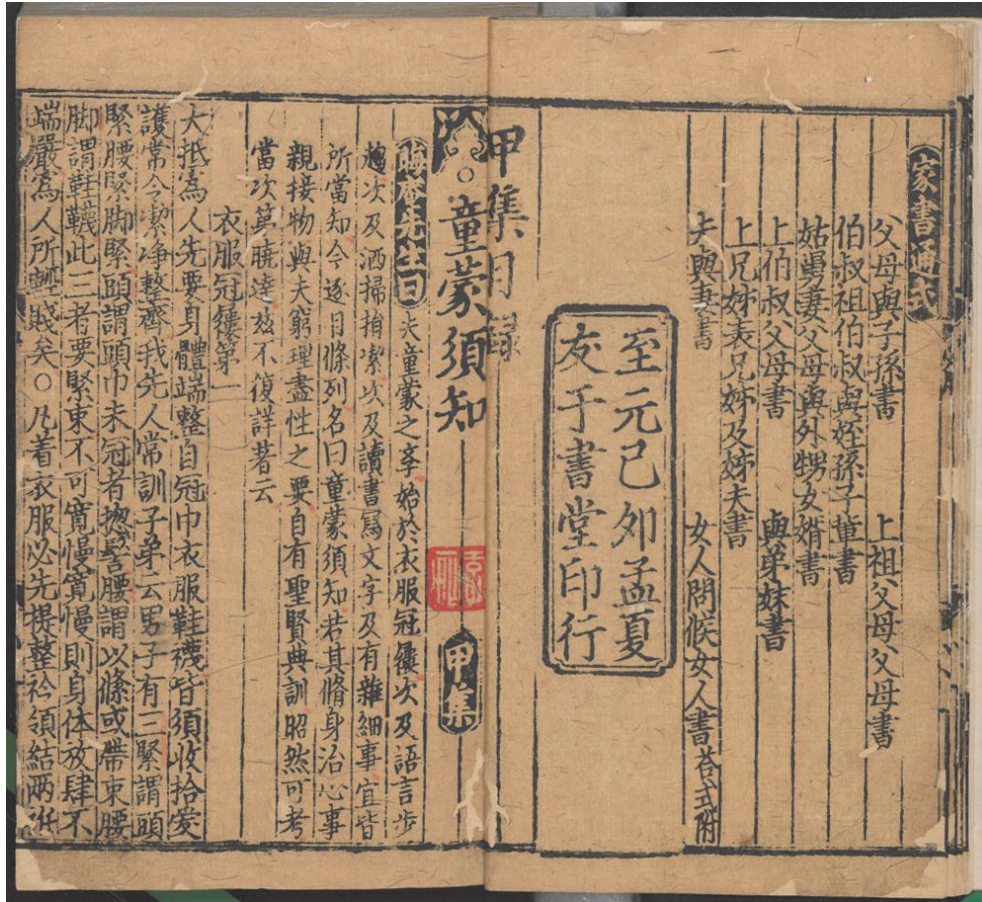 家書通式
父母與子孫書　上祖父母父母書
伯叔祖伯叔與姪孫子童書
姑舅妻父母與外甥女婿書
上伯叔父母書　與弟妹書
上兄姊表兄姊及姊夫書
夫與妻書　女人問候女人書荅式附
至元己夘孟夏
友于書堂印行
甲集目錄
○童蒙須知　甲集
晦菴先生曰夫童蒙之孝始於衣服冠履次及語言步
趨次及洒掃捎㓗次及讀書寫文字及有雜細事宜皆
所當知今逐目條列名曰童蒙須知若其脩身治心事
親接物與夫窮理盡性之要自有聖賢典訓昭然可考
當次第曉達玆不復詳著云
衣服冠履第一
大抵爲人先要身體端整自冠巾衣服鞋襪皆須收拾愛
護常令㓗浄整齊我先人常訓子弟云男子有三緊謂頭
緊腰緊脚緊頭謂頭巾未冠者揔髻腰謂以絛或帶束腰
脚謂鞋韈此三者要緊束不可寛慢寛慢則身体放肆不
端嚴爲人所輕賤矣○凡着衣服必先提整衿領結兩